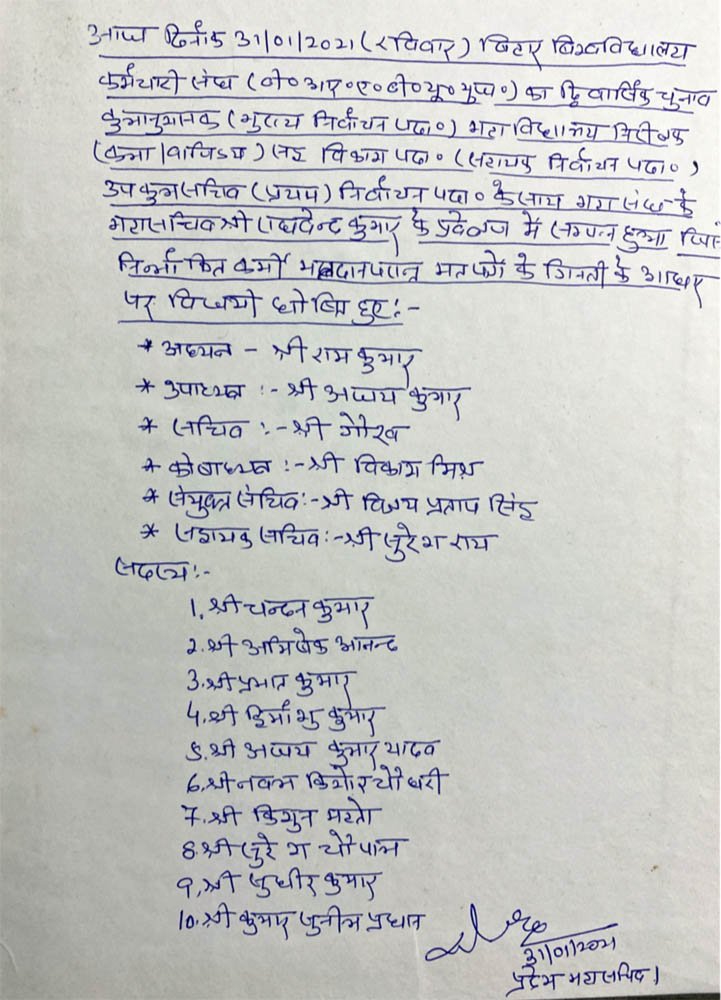 आज दिनांक 31/01/2021 (रविवार) बिहार विश्वविद्यालय
कर्मचारी संघ (बी०आर०ए०बी०यू०मुज०) का द्विवार्षिक चुनाव
कुलानुशासक (मुख्य निर्वाचन पदा०) महाविद्यालय निरीक्षक
(कला/वाणिज्य) सह विकास पदा० (सहायक निर्वाचन पदा०)
उप कुलसचिव (प्रथम) निर्वाचन पदा० के साथ महासंघ के
महासचिव श्री राघवेन्द्र कुमार के प्रवेक्षण में सम्पन्न हुआ
निम्नांकित कर्मी मतदान मतपत्रों के गिनती के आधार
पर विजयी घोषित हुए:-
* अध्यक्ष - श्री राम कुमार
* उपाध्यक्ष :- श्री अजय कुमार
* सचिव :- श्री गौरव
* कोषाध्यक्ष :- श्री विकास मिश्र
* संयुक्त सचिव:- श्री विजय प्रताप सिंह
* सहायक सचिव:- श्री सुरेश राय
सदस्य:-
1. श्री चन्दन कुमार
2. श्री अभिषेक आनन्द
3. श्री प्रभात कुमार
4. श्री हिमांशु कुमार
5. श्री अजय कुमार यादव
6. श्री नवल किशोर चौधरी
7. श्री किशुन महतो
8. श्री सुरेश चौपाल
9. श्री सुधीर कुमार
10. श्री कुमार सुनील प्रधान
31/01/2021
प्रदेश महासचिव।